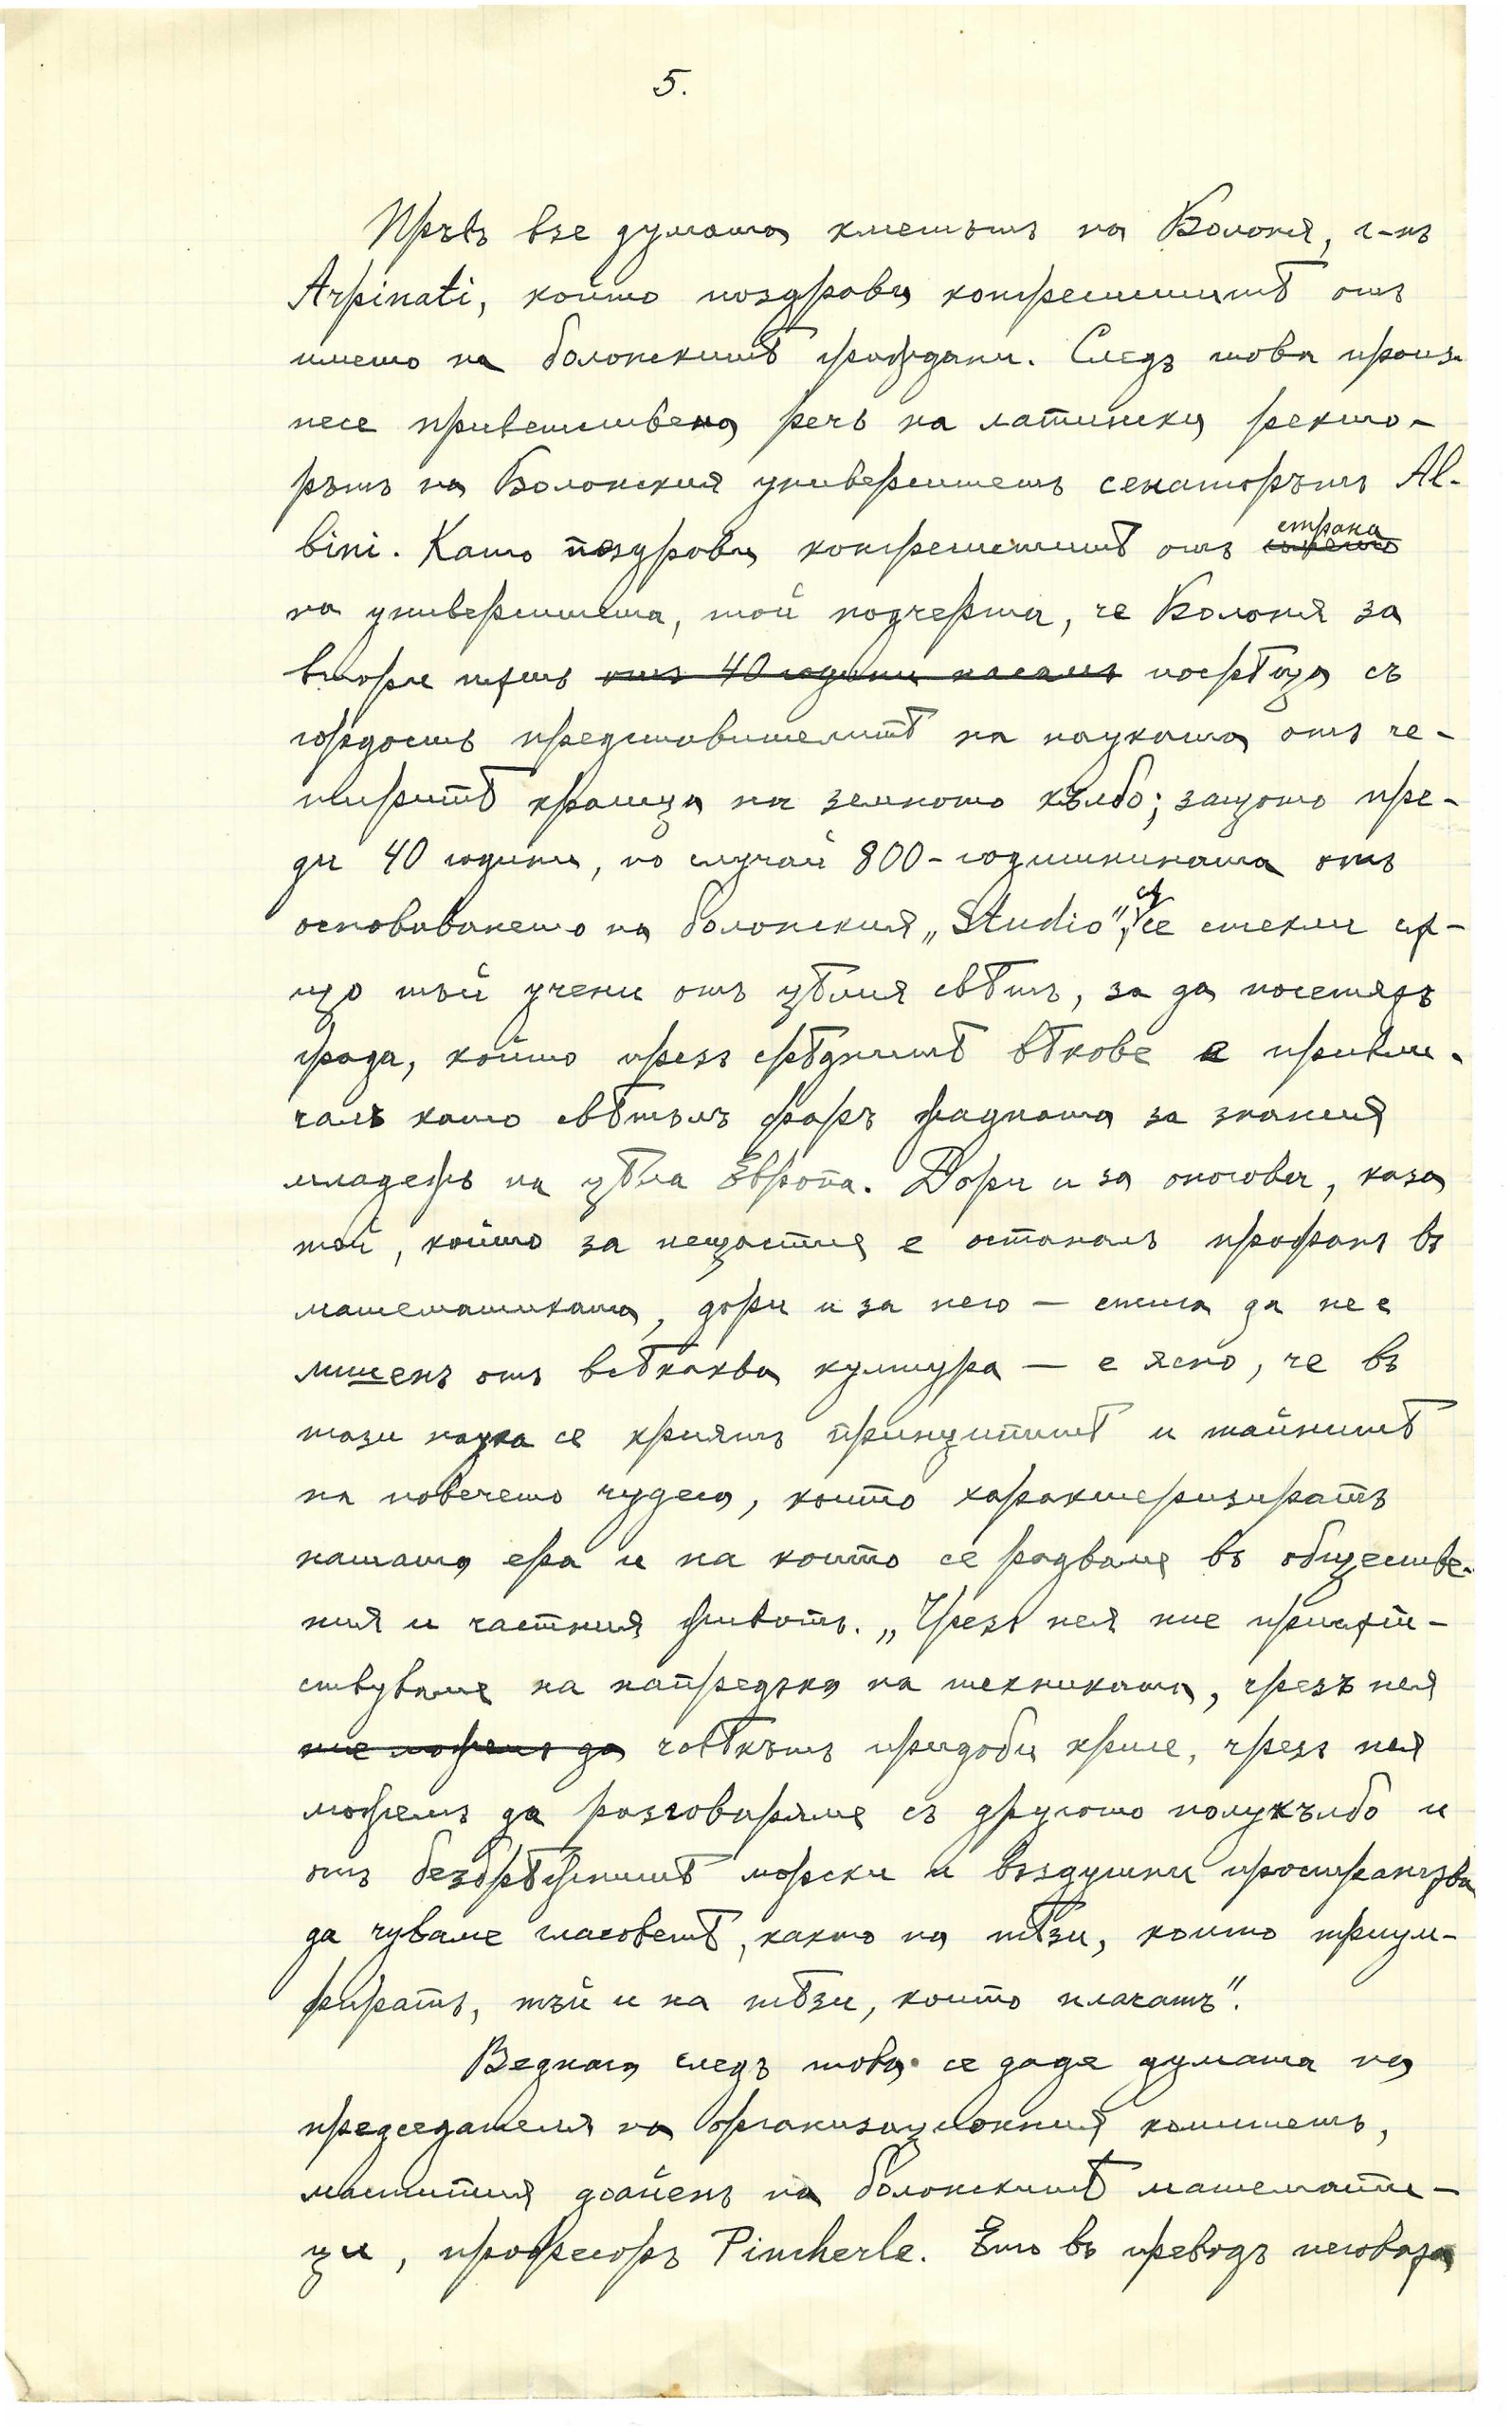 5.
Пръвъ взе думата кметътъ на Болоня, г-нъ
Arpinati, който поздрави конгресиститѣ отъ
името на болонскитѣ граждани. Следъ това произ-
несе приветствена речь на латински ректо-
рътъ на Болонския университетъ сенаторътъ Al-
bini. Като поздрави конгресиститѣ отъ страна
на университета, той подчерта, че Болоня за
втори пѫть отъ 40 години насамъ посрѣща съ
гордость представителитѣ на науката отъ че-
тиритѣ краища на земното кълбо; защото пре-
ди 40 години, по случай 800-годишнината отъ
основаването на болонския „Studio“, сѫ се стекли сѫ-
що тъй учени отъ цѣлия свѣтъ, за да посетятъ
града, който презъ срѣднитѣ вѣкове е привли-
чалъ като свѣтълъ фаръ жадната за знания
младежь на цѣла Европа. Дори и за оногова, каза
той, който за нещастие е останалъ профанъ въ
математиката, дори и за него — стига да не е
лишенъ отъ всѣкаква култура — е ясно, че въ
тази наука се криятъ принципитѣ и тайнитѣ
на повечето чудеса, които характеризиратъ
нашата ера и на които се радваме въ обществе-
ния и частния животъ. „Чрезъ нея ние присѫт-
ствуваме на напредъка на техниката, чрезъ нея
ние можемъ да човѣкътъ придоби криле, чрезъ нея
можемъ да разговаряме съ другото полукълбо и
отъ безбрѣжнитѣ морски и въздушни пространства
да чуваме гласоветѣ, както на тѣзи, които триум-
фиратъ, тъй и на тѣзи, които плачатъ“.
Веднага следъ това се даде думата на
председателя на организационния комитетъ,
мастития доайенъ на болонскитѣ математи-
ци, професоръ Pincherle. Ето въ преводъ неговата